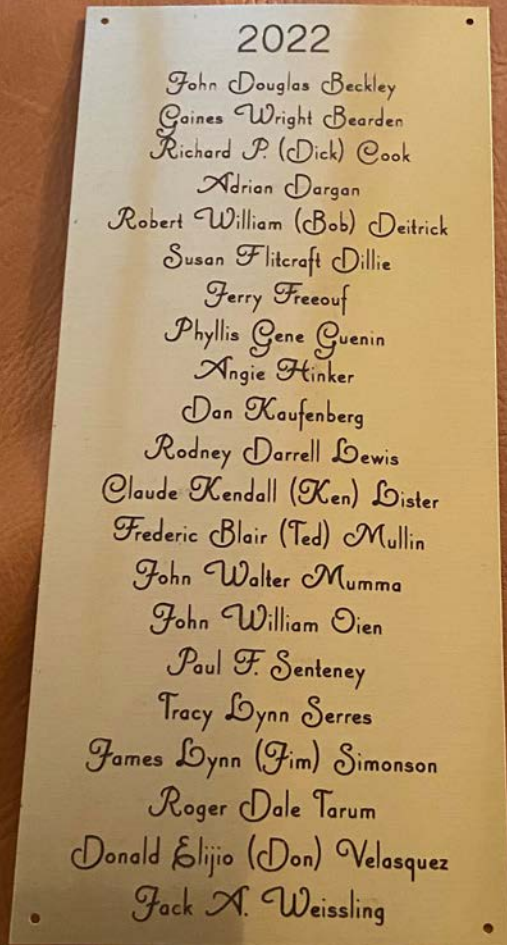 2022
John Douglas Beckley
Gaines Wright Bearden
Richard P. (Dick) Cook
Adrian Dargan
Robert William (Bob) Deitrick
Susan Flitcraft Dillie
Jerry Freeouf
Phyllis Gene Guenin
Angie Hinker
Dan Kaufenberg
Rodney Darrell Lewis
Claude Kendall (Ken) Lister
Frederic Blair (Ted) Mullin
John Walter Mumma
John William Oien
Paul F. Senteney
Tracy Lynn Serres
James Lynn (Jim) Simonson
Roger Dale Tarum
Donald Elijio (Don) Velasquez
Jack A. Weissling